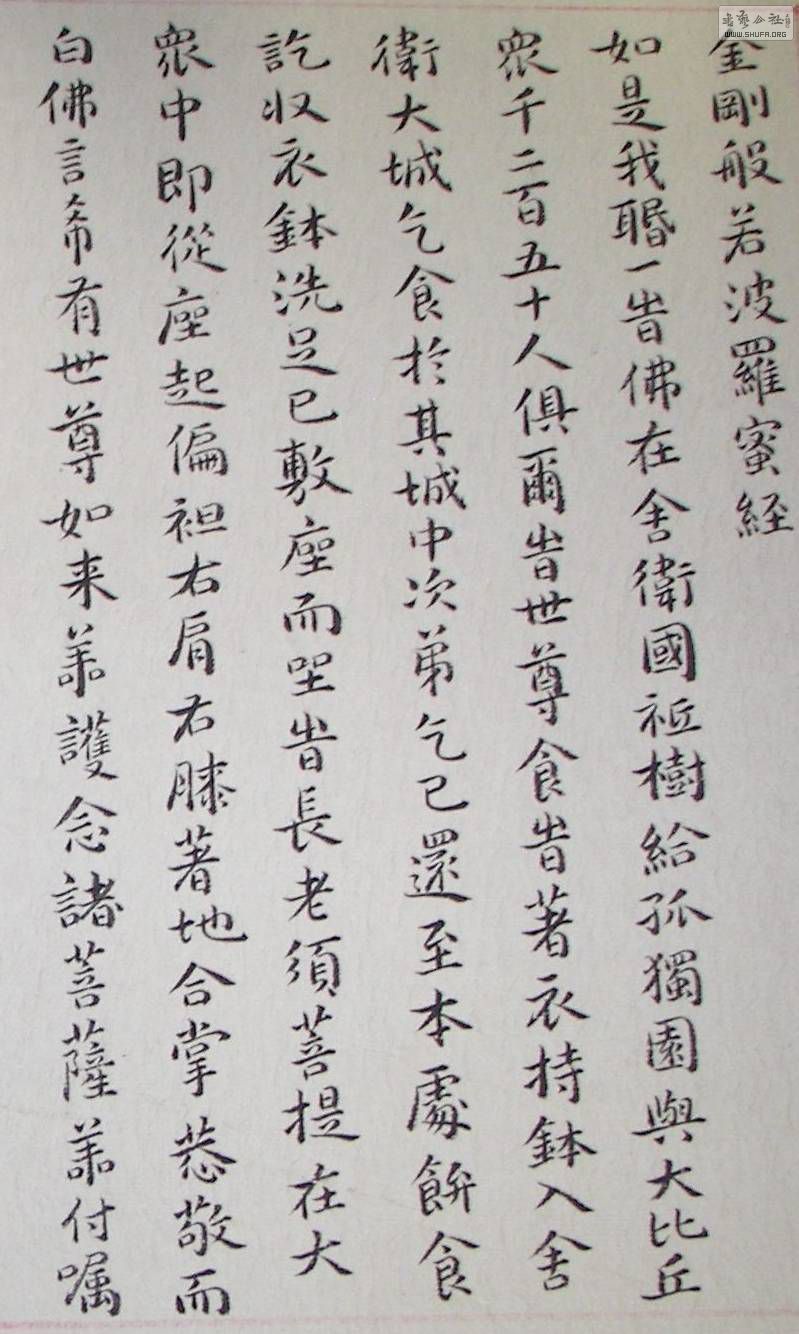 金剛般若波羅蜜経
如是我聞一旹佛在舍衛國祇樹給孤獨園與大比丘
衆千二百五十人俱爾旹世尊食旹著衣持鉢入舍
衛大城乞食於其城中次第乞已還至本處飯食
訖収衣鉢洗足已敷座而坐旹長老須菩提在大
衆中即從座起偏袒右肩右膝著地合掌恭敬而
白佛言希有世尊如来善護念諸菩薩善付嘱
WWW.SHUFA.ORG